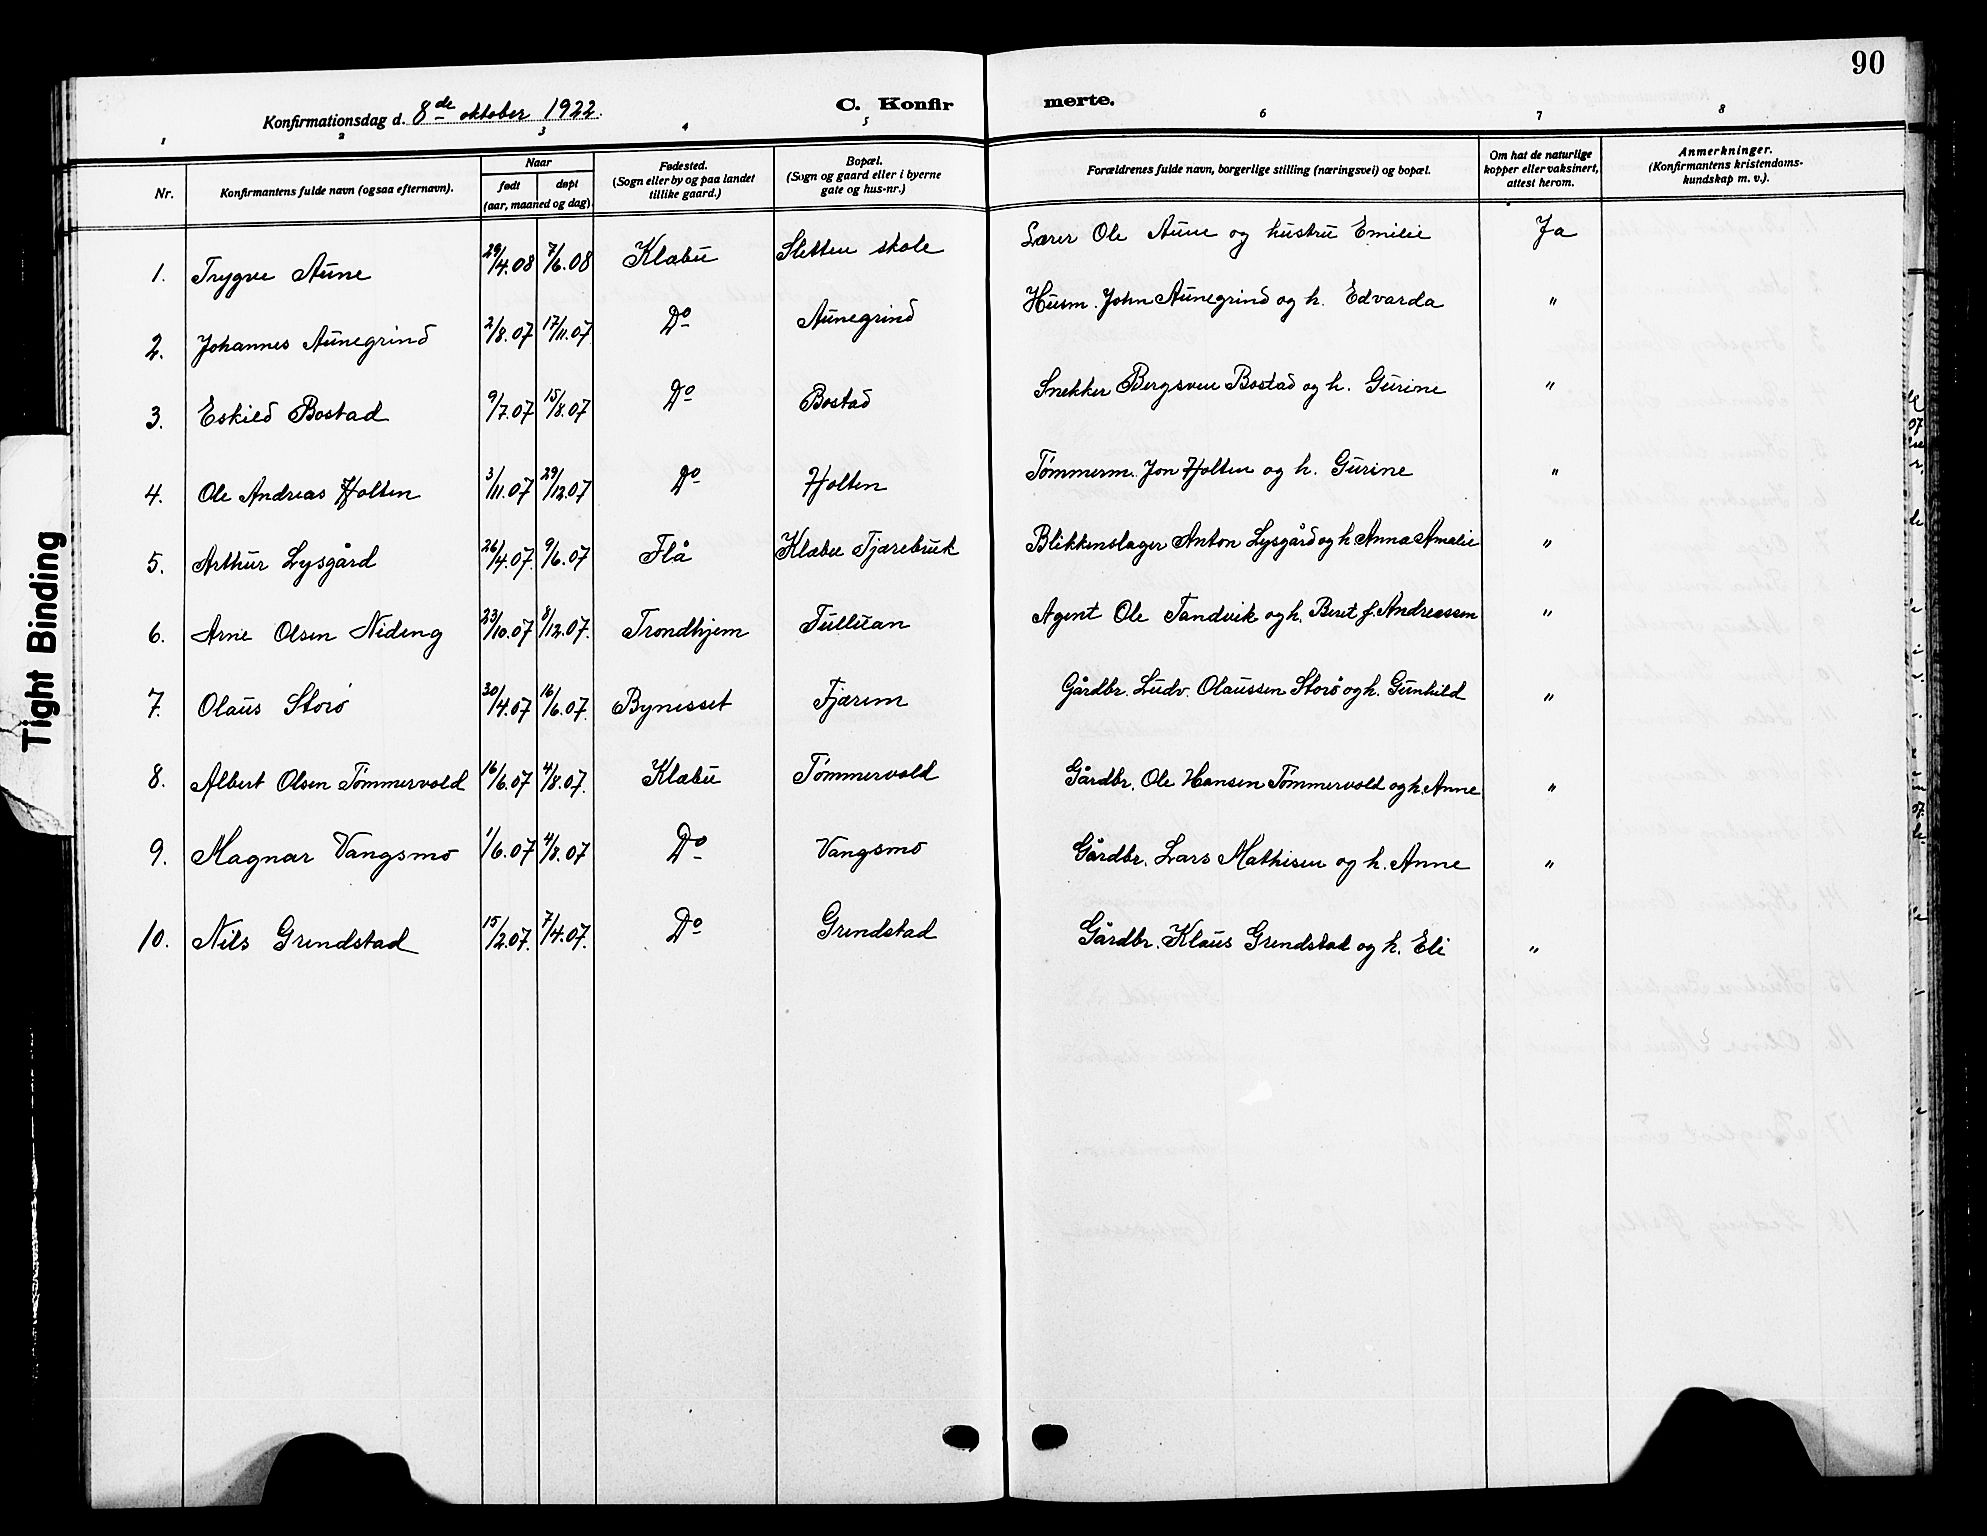 90
Konfirmationsdag d. 8de oktober 1922.
C. Konfirmerte.
1 2 3 4 5 6 7 8
Nr. Konfirmantens fulde navn (ogsaa efternavn). Naar født døpt (aar, maaned og dag) Fødested. (Sogn eller by og paa landet tillike gaard.) Bopæl. (Sogn og gaard eller i byerne gate og hus-nr.) Forældrenes fulde navn, borgerlige stilling (næringsvei) og bopæl. Om hat de naturlige kopper eller vaksinert, attest herom. Anmerkninger. (Konfirmantens kristendomskundskap m. v.).
1. Trygve Aune 29/4.08 7/6.08 Klæbu Sletten skole Lærer Ole Aune og hustru Emilie Ja
2. Johannes Aunegrind 2/8.07 17/11.07 Do Aunegrind Husm. John Aunegrind og h. Edvarda "
3. Eskild Bostad 9/7.07 15/8.07 Do Bostad Snekker Bergsven Bostad og h. Gurine "
4. Ole Andreas Holten 3/11.07 29/12.07 Do Holten Tømmerm. Jon Holten og h. Gurine "
5. Arthur Lysgård 26/4.07. 9/6.07 Flå Klæbu Tjærebruk Blikkenslager Anton Lysgård og h. Anna Amalie "
6. Arne Olsen Nideng 23/10.07 8/12.07. Trondhjem Tulluan Agent Ole Tandvik og h. Beret f. Andreassen "
7. Olaus Storø 30/4.07 16/6.07. Bynesset Tjærem Gårdbr. Ludv. Olaussen Storø og h. Gunhild "
8. Albert Olsen Tømmervold 16/6.07 4/8.07. Klæbu Tømmervold Gårdbr. Ole Hansen Tømmervold og h. Anne "
9. Magnar Vangsmo 1/6.07 4/8.07 Do Vangsmo Gårdbr. Lars Mathisen og h. Anne "
10. Nils Grendstad 15/2.07. 7/4.07. Do Grendstad Gårdbr. Klaus Grendstad og h. Eli "
Tight Binding